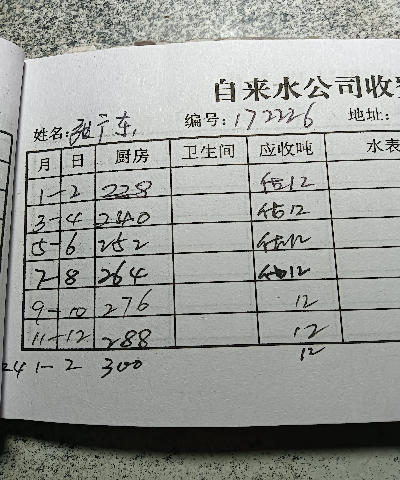 自来水公司收
姓名: 张广东 编号: 172226 地址:
月 日 厨房 卫生间 应收吨 水表
1-2 228 估12
3-4 240 估12
5-6 252 估12
7-8 264 估12
9-10 276 12
11-12 288 12
24 1-2 300 12